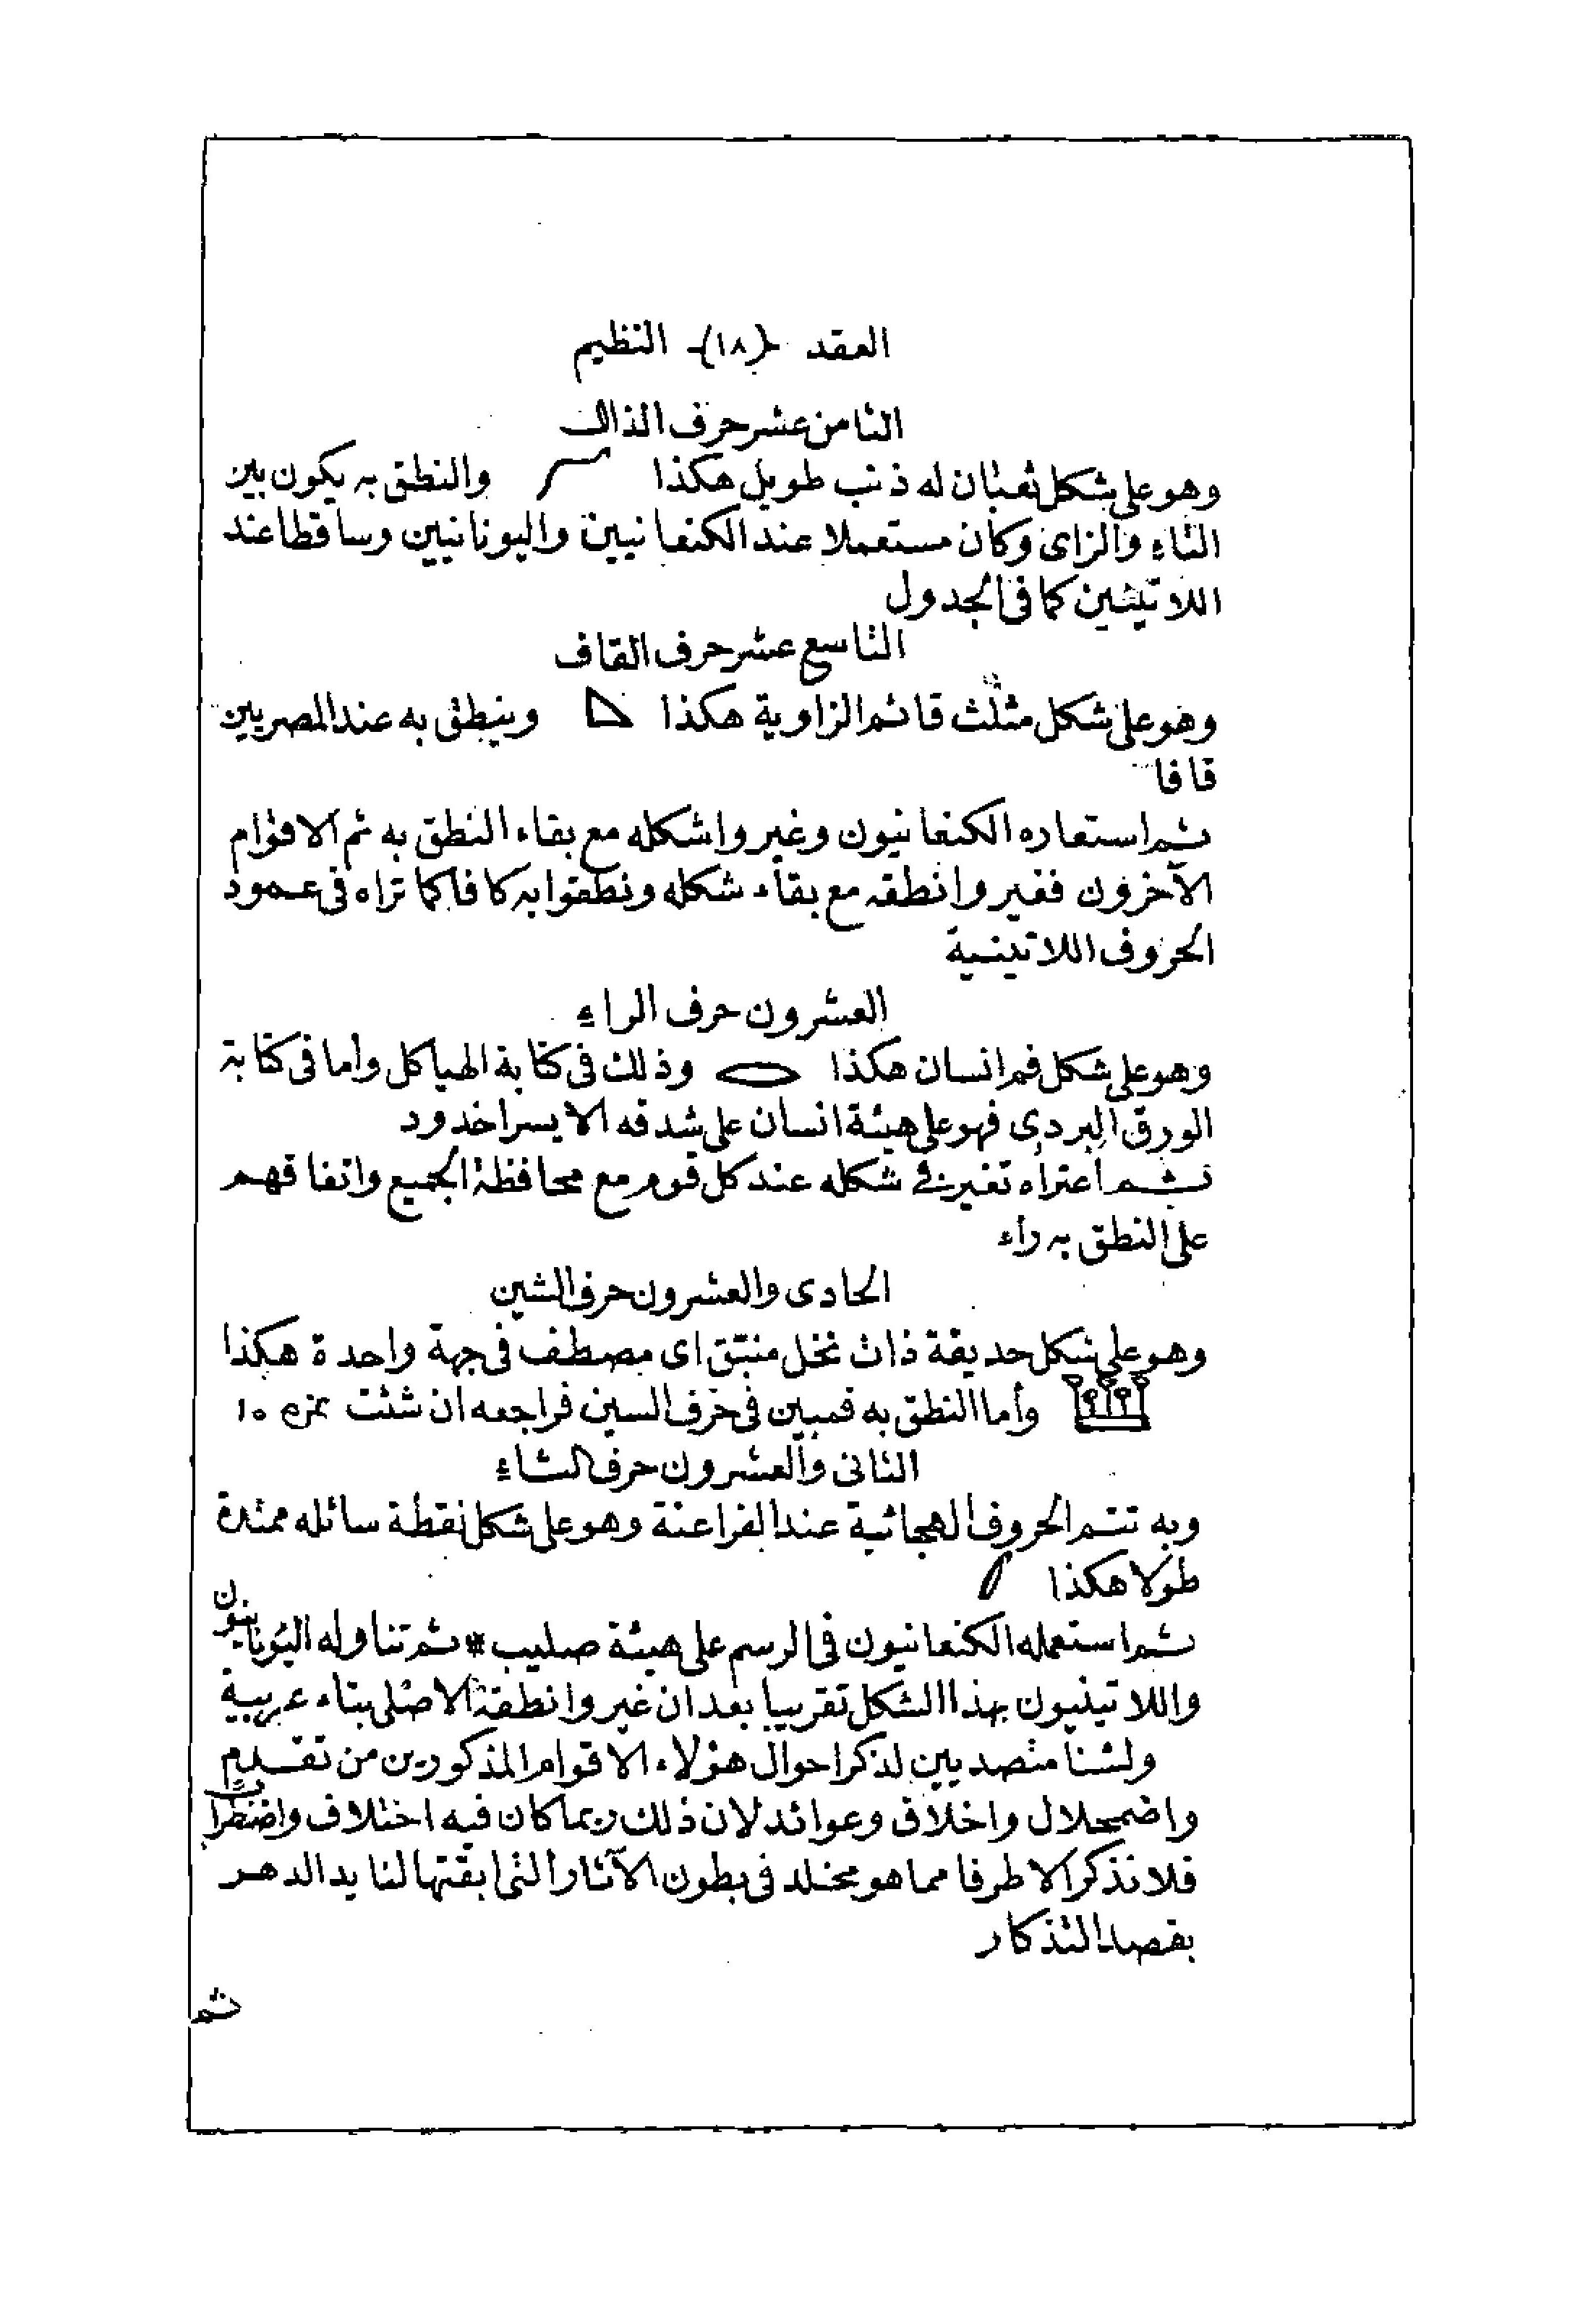 العقد -{١٨}- النظيم
الثامن عشر حرف الذال
وهو على شكل ثعبان له ذنب طويل هكذا والنطق به يكون بين
الثاء والزاى وكان مستعملا عند الكنعانيين واليونانيين وساقطا عند
اللاتينيين كما فى الجدول
التاسع عشر حرف القاف
وهو على شكل مثلث قائم الزاوية هكذا وينطق به عند المصريين
قافا
ثم استعاره الكنعانيون وغيروا شكله مع بقاء النطق به ثم الاقوام
الآخرون فغيروا نطقه مع بقاء شكله ونطقوا به كافا كما تراه فى عمود
الحروف اللاتينية
العشرون حرف الراء
وهو على شكل فم انسان هكذا وذلك فى كتابة الهياكل وأما فى كتابة
الورق البردى فهو على هيئة انسان على شدقه الايسر اخدود
ثم اعتراه تغير فى شكله عند كل قوم مع محافظة الجميع واتفاقهم
على النطق به راء
الحادى والعشرون حرف الشين
وهو على شكل حديقة ذات نخل منبتق اى مصطف فى جهة واحدة هكذا
وأما النطق به فمبين فى حرف السين فراجعه ان شئت بنمره ١٥
الثانى والعشرون حرف الثاء
وبه تتم الحروف الهجائية عند الفراعنة وهو على شكل نقطة سائله ممتدة
طولا هكذا
ثم استعمله الكنعانيون فى الرسم على هيئة صليب * ثم تناوله اليونانيون
واللاتينيون بهذا الشكل تقريبا بعد ان غيروا نطقه الاصلى بتاء عربية
ولسنا متصديين لذكر احوال هؤلاء الاقوام المذكورين من تقدم
واضمحلال واخلاق وعوائد لان ذلك ربما كان فيه اختلاف واضطراب
فلا نذكر الا طرفا مما هو مخلد فى بطون الآثار التى ابقتها لنا يد الدهر
بقصد التذكار
ثم